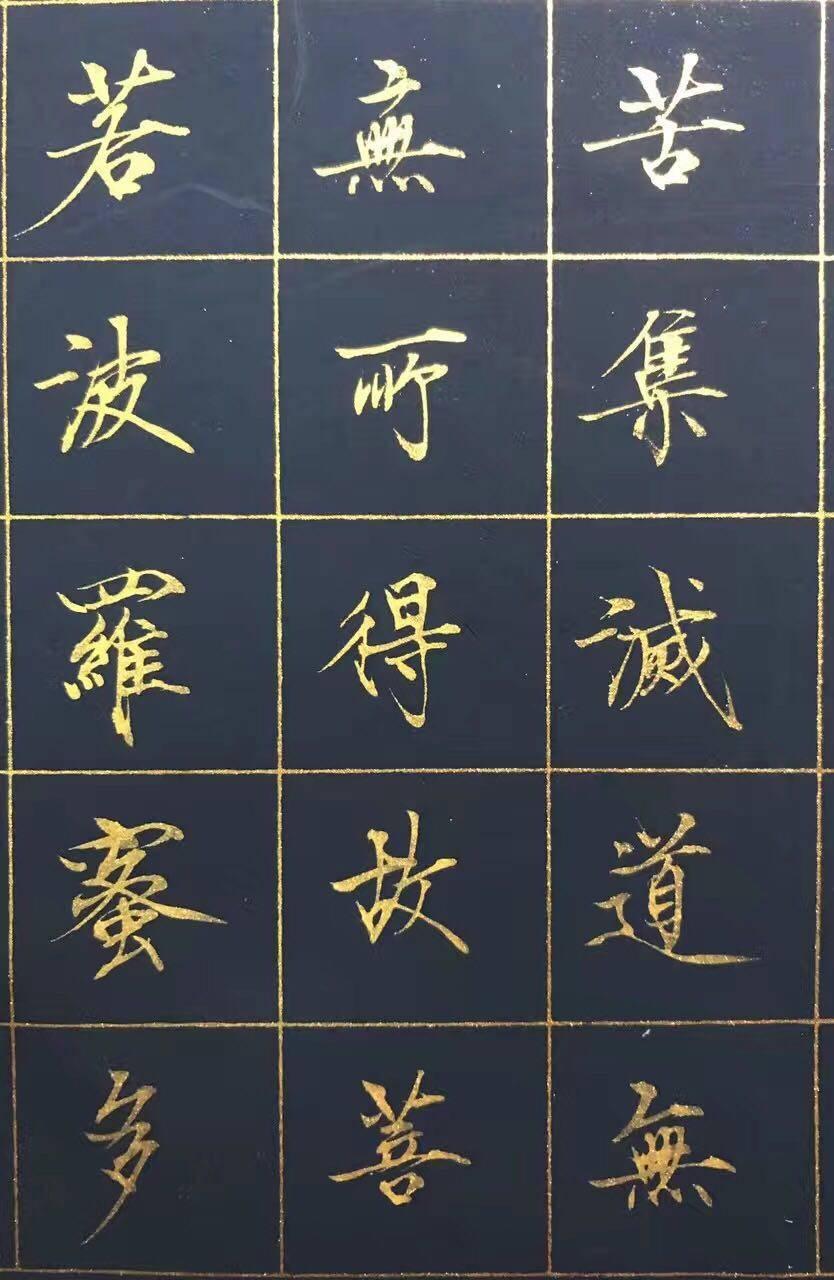 苦集滅道無
無所得故菩
若波羅蜜多